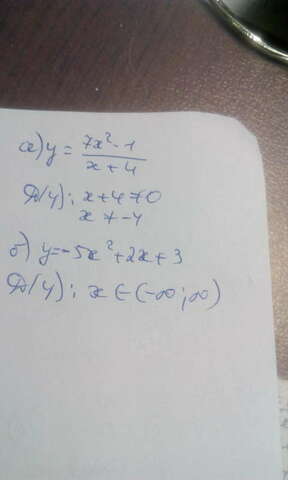 а) y = (7x² - 1)/(x + 4)
D(y): x + 4 ≠ 0
x ≠ -4
б) y = -5x² + 2x + 3
D(y): x ∈ (-∞; ∞)